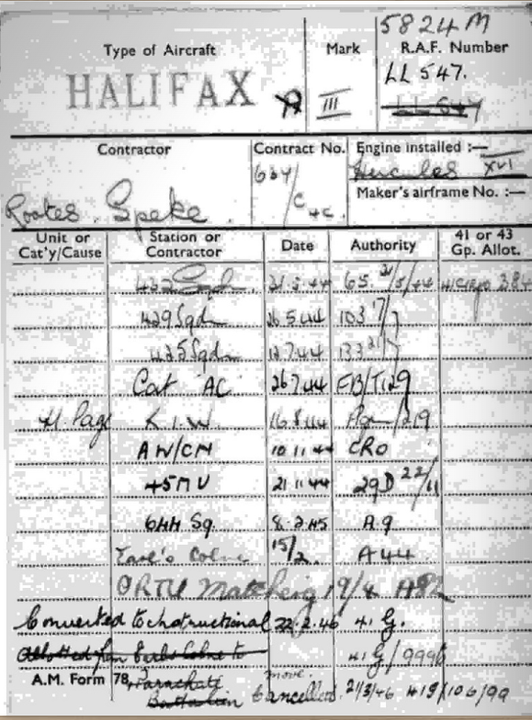 5824M
Type of Aircraft Mark R.A.F. Number
HALIFAX III LL 547.
LL 547
Contractor Contract No. Engine installed :—
637/ Hercules XVI
Rootes. Speke. C4C. Maker's airframe No. :—
Unit or Cat'y/Cause Station or Contractor Date Authority 41 or 43 Gp. Allot.
432 Sqd. 21.5.44 65. 21/5/44
429 Sqd 26.5.44 103
425 Sqd 12.7.44 133
Cat AC 26.7.44 EB/T129
H. Page R.I.W. 16.8.44 /219
AW/CN 10.11.44 CRO
45MU 21.11.44 29D 22/11
644 Sq. 8.2.45 A9
Earl's Colne 15/2. A44
ORTU Matching 19/4 A82
Converted to Instructional 22.2.46 41 G.
Allotted from Earls Colne to 41 G/
A.M. Form 78 Parachute Battalion move Cancelled. 2/3/46